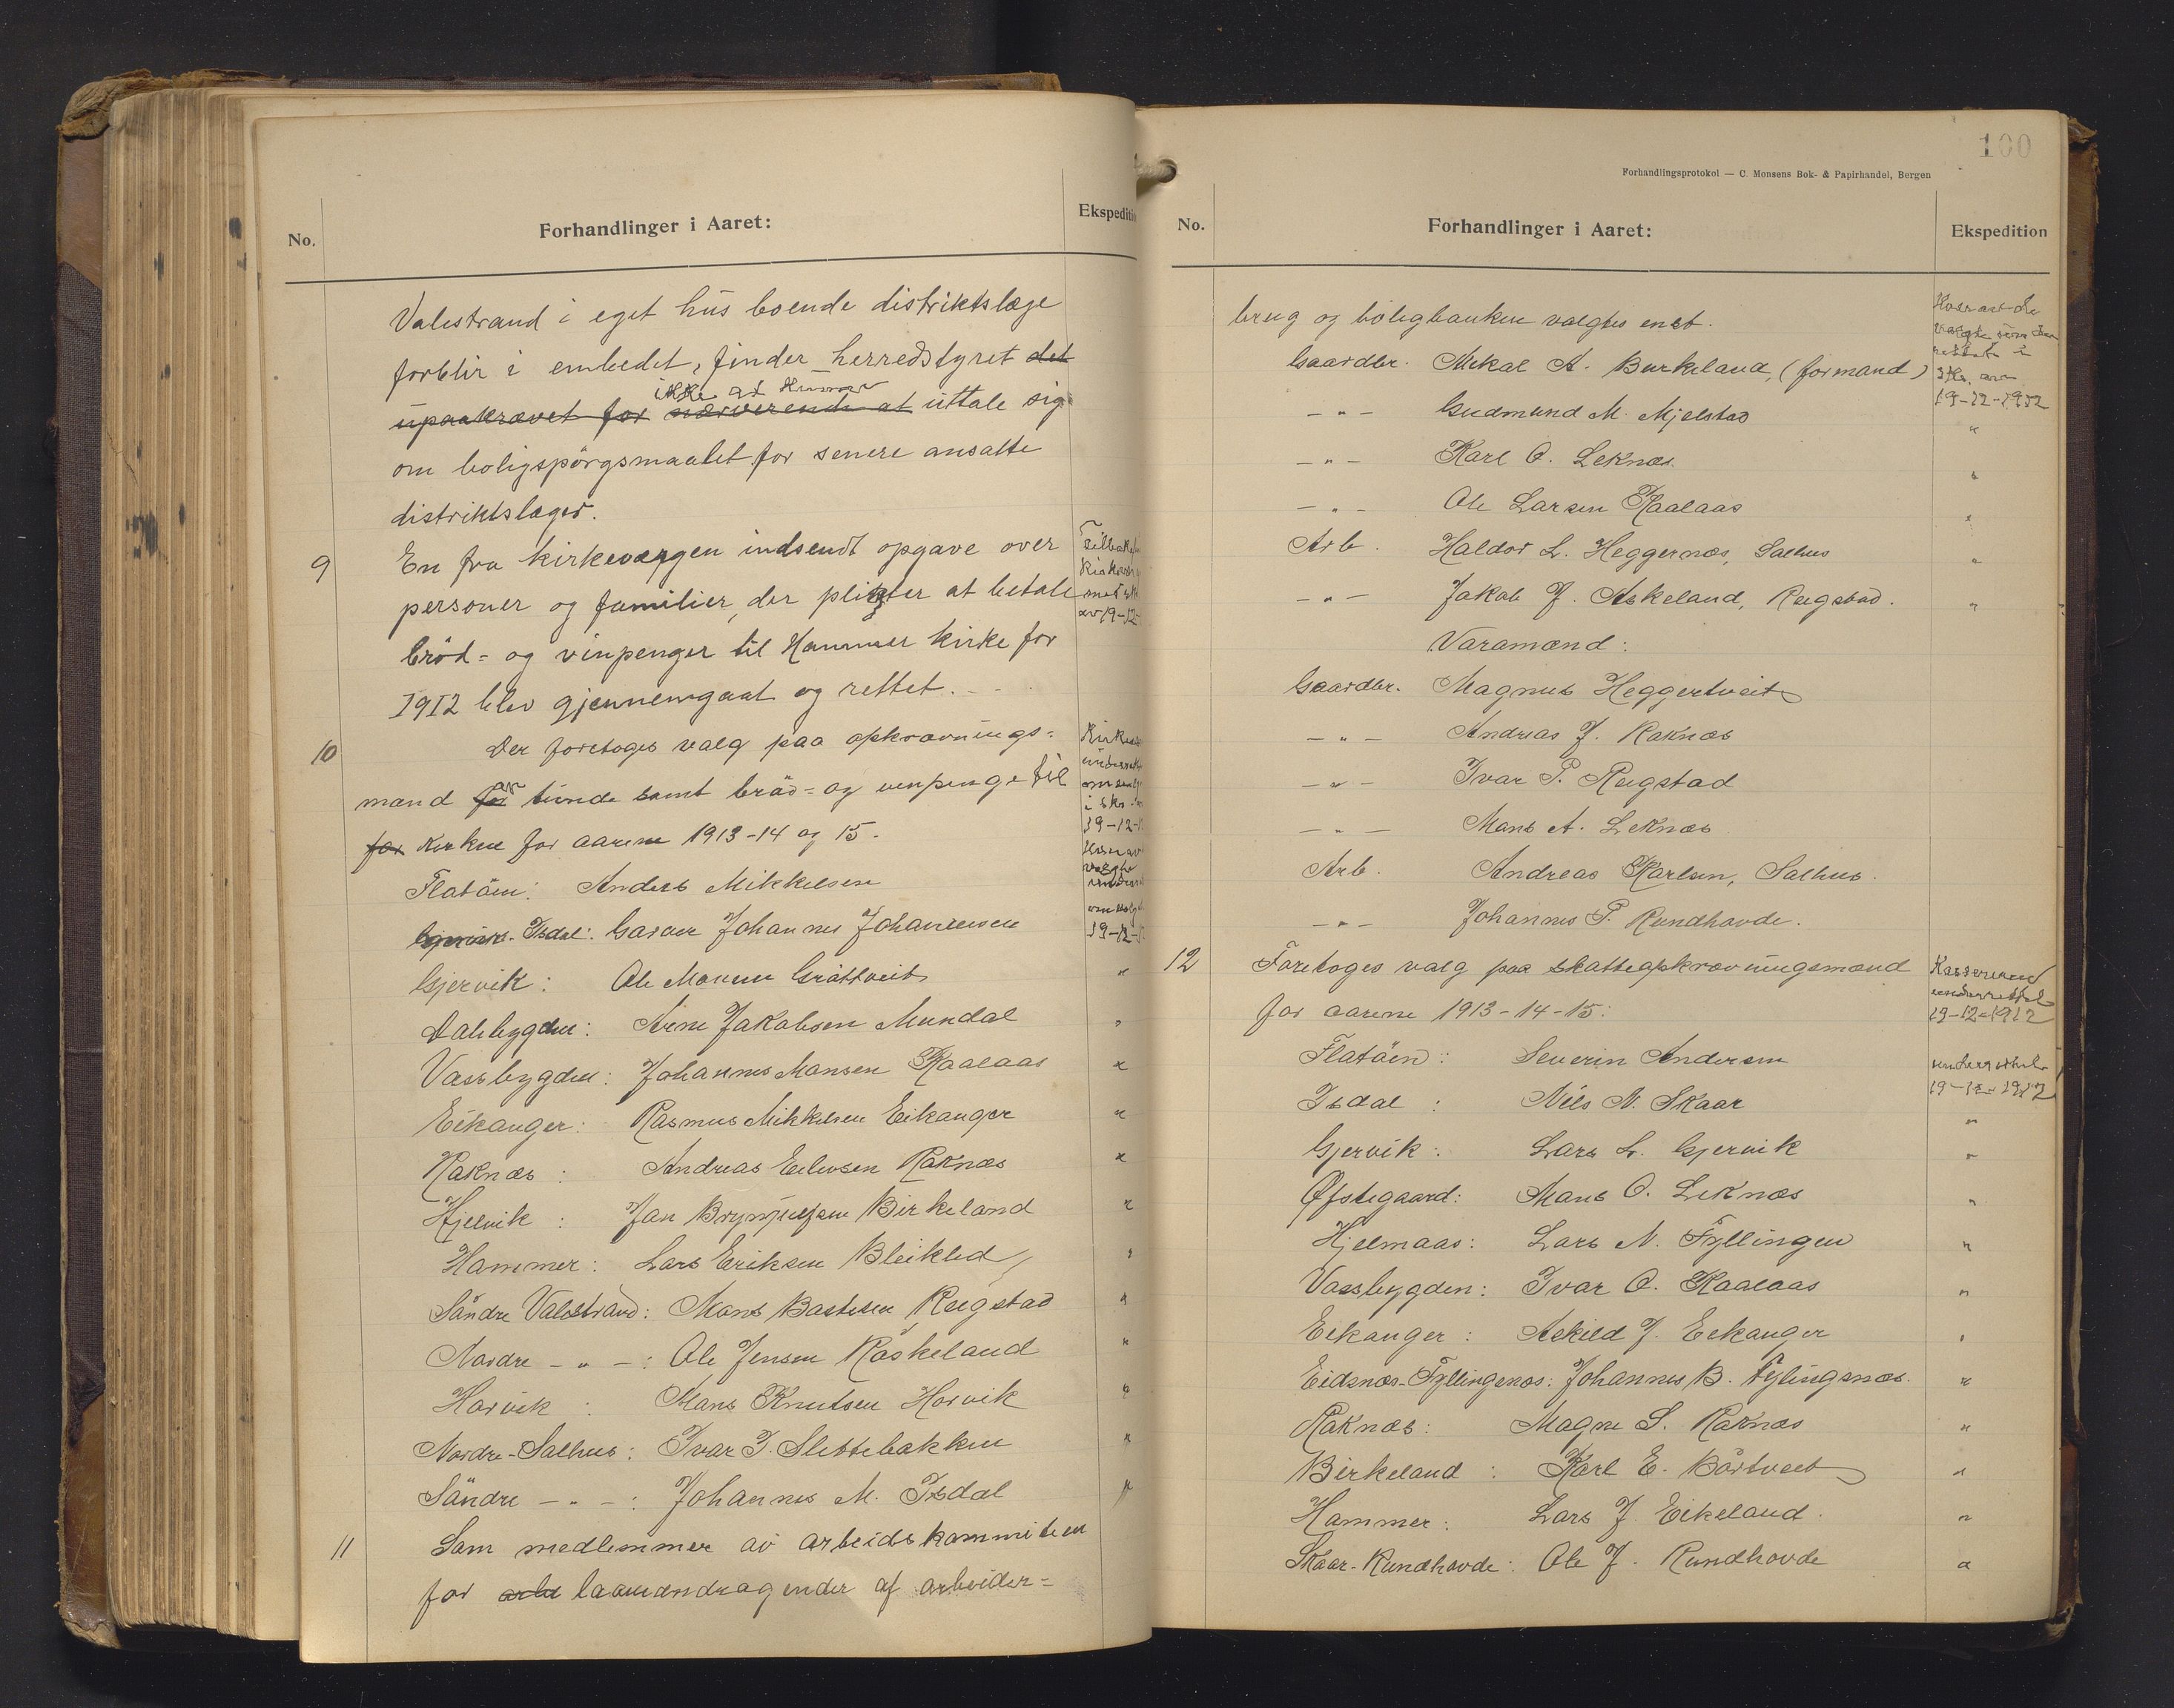 No.
Forhandlinger i Aaret:
Valestrand i eget hus boende distriktslæge
forblir i embedet, finder herredstyret det
ikke at
upaakrævet for nærværende at uttale sig
om boligspörgsmaalet for senere ansatte
distriktslæger.
9 En fra kirkeværgen indsendt opgave over
personer og familier, der pligter at betale
bröd= og vinpenger til Hammer kirke for
1912 blev gjennemgaat og rettet.
10 Der foretoges valg paa opkrævnings=
mænd for av tiende samt bröd= og vinpenge til
for kirken for aarene 1913-14 og 15.
Flatöen: Anders Mikkelsen
Gjervik. Isdal: Garver Johannes Johannessen
Gjervik: Ole Monsen Gröttveit
Dalebygden: Arne Jakobsen Mundal
Vassbygden: Johannes Monsen Kaalaas
Eikanger: Rasmus Mikkelsen Eikanger
Raknæs: Andreas Eilevsen Raknæs
Hjelvik: Jan Brynjulfsen Birkeland
Hammer: Lars Eriksen Bleiklid
Söndre Valestrand: Mons Bastesen Reigstad
Nordre - " - : Ole Jensen Röskeland
Horvik: Mons Knutsen Horvik
Nordre-Salhus: Ivar T. Slettebakken
Söndre - " - : Johannes M. Isdal
11 Som medlemmer av arbeidskommiteen
for arbe laaneandragender af arbeider=
Ekspediti
19-12-
19-12-
100
Forhandlingsprotokol — C. Monsens Bok- & Papirhandel, Bergen
No.
Forhandlinger i Aaret:
Ekspedition
brug og boligbanken valgtes enst.
Gaardbr. Mikal A. Birkeland, (formand)
- " - Gudmund M. Mjelstad
- " - Karl O. Leknæs
- " - Ole Larsen Kaalaas
Arb. Haldor L. Heggernæs, Salhus
- " - Jakob J. Askeland, Reigstad.
Varamænd:
Gaardbr. Magnus Heggertveit
- " - Andreas J. Raknæs
- " - Ivar P. Reigstad
- " - Mons A. Leknæs
Arb. Andreas Karlsen, Salhus.
- " - Johannes P. Rundhovde.
12 Foretoges valg paa skatteopkrævningsmænd
for aarene 1913-14-15:
Flatöen: Severin Andersen
Isdal: Nils N. Skaar
Gjervik: Lars L. Gjervik
Øfstegaard: Mons O. Leknæs
Hjelmaas: Lars N. Fyllingen
Vassbygden: Ivar O. Kaalaas
Eikanger: Askild J. Eikanger
Eidsnæs-Fyllingsnæs: Johannes B. Fylingsnæs.
Raknæs: Magne S. Raknæs
Birkeland: Karl E. Börtveit
Hammer: Lars J. Eikeland.
Skaar-Rundhovde: Ole J. Rundhovde
Hver av de
valgte
19-12-1912
Kassereren
underrettet
19-12-1912
underrettet
19-12-1912